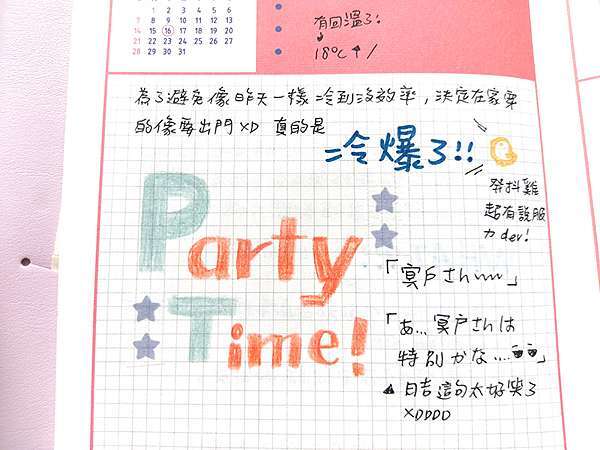 1 2 3 4 5 6
7 8 9 10 11 12 13
14 15 16 17 18 19 20
21 22 23 24 25 26 27
28 29 30 31
有回溫了!
18°C↑/
為了避免像昨天一樣冷到沒效率,決定在家穿
的像要出門XD 真的是
冷爆了!!
發抖雞
超有說服
力der!
Party
Time!
「冥戶さん……」
「あ…冥戶さんは
特別かな….」
▲ 日吉這句太好笑了
XDDDD